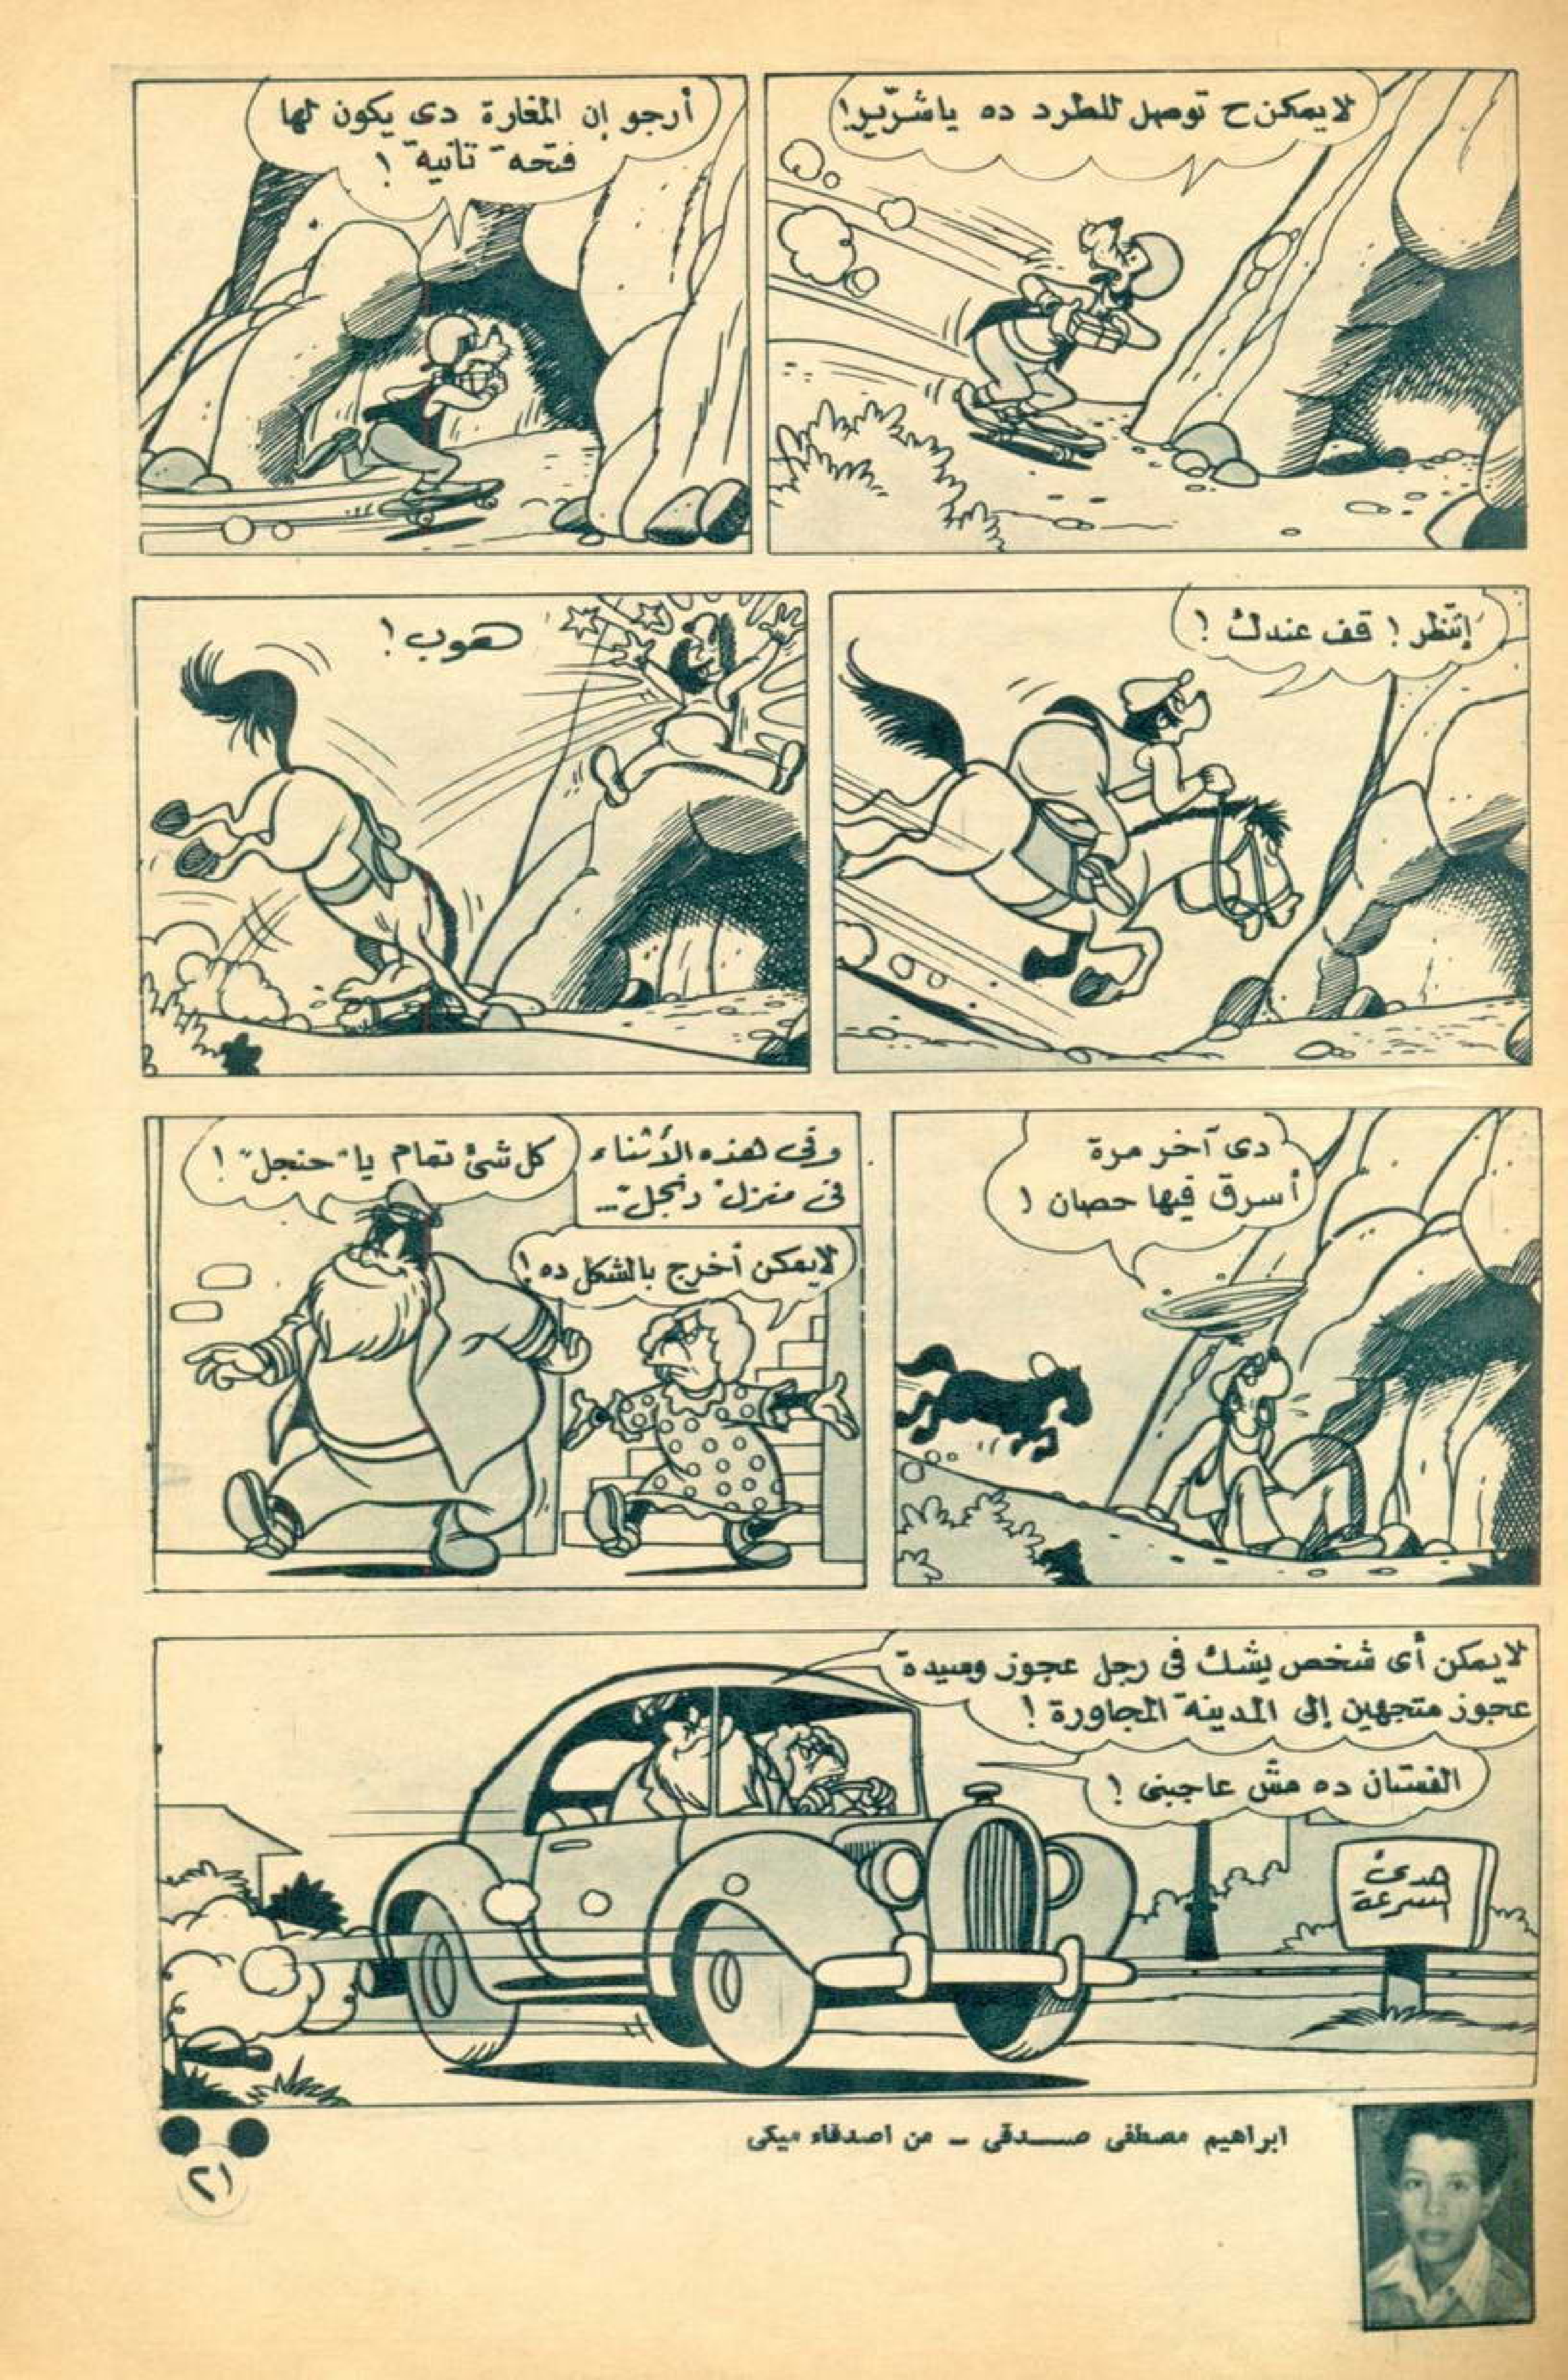 لايمكن ح توصل للطرد ده ياشرّير!
أرجو إن المغارة دى يكون لها
فتحة تانية !
إنتظر ! قف عندك !
هوب !
دى آخر مرة
أسرق فيها حصان !
وفى هذه الأثناء
فى منزل "دنجل"...
لايمكن أخرج بالشكل ده !
كل شئ تمام يا "حنجل" !
لايمكن أى شخص يشك فى رجل عجوز وسيدة
عجوز متجهين إلى المدينة المجاورة !
الفستان ده مش عاجبنى !
هدئ
السرعة
ابراهيم مصطفى صدقى - من اصدقاء ميكى
٢١